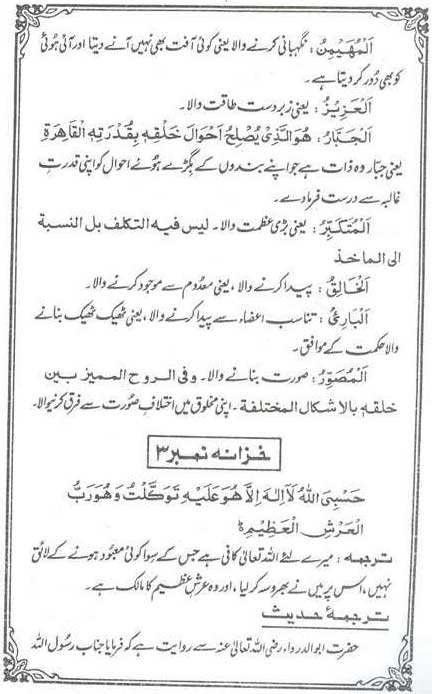 اَلْمُهَيْمِنُ : نگہبانی کرنے والا یعنی کوئی آفت بھی نہیں آنے دیتا اور آئی ہوئی
کو بھی دُور کر دیتا ہے۔
اَلْعَزِيْزُ : یعنی زبردست طاقت والا۔
اَلْجَبَّارُ : هُوَالَّذِيْ يُصْلِحُ اَحْوَالَ خَلْقِهٖ بِقُدْرَتِهِ الْقَاهِرَةِ
یعنی جبّار وہ ذات ہے جو اپنے بندوں کے بگڑے ہوئے احوال کو اپنی قدرتِ
غالبہ سے درست فرما دے۔
اَلْمُتَكَبِّرُ : یعنی بڑی عظمت والا۔ ليس فيه التكلف بل النسبة
الى الماخذ
اَلْخَالِقُ : پیدا کرنے والا، یعنی معدُوم سے موجود کرنے والا۔
اَلْبَارِئُ : تناسب اعضاء سے پیدا کرنے والا، یعنی ٹھیک ٹھیک بنانے
والا حکمت کے موافق۔
اَلْمُصَوِّرُ : صورت بنانے والا۔ وفى الروح المميز بين
خلقه بالاشكال المختلفة۔ اپنی مخلوق میں اختلافِ صُورت سے فرق کرنیوالا۔
خزانہ نمبر ۳
حَسْبِيَ اللّٰهُ لَآ اِلٰهَ اِلَّا هُوَ عَلَيْهِ تَوَكَّلْتُ وَهُوَ رَبُّ
الْعَرْشِ الْعَظِيْمِ ط
ترجمہ : میرے لئے اللہ تعالیٰ کافی ہے جس کے سوا کوئی معبُود ہونے کے لائق
نہیں، اس پر میں نے بھروسہ کر لیا، اور وہ عرشِ عظیم کا مالک ہے۔
ترجمۂ حدیث
حضرت ابوالدرداء رضی اللہ تعالیٰ عنہ سے روایت ہے کہ فرمایا جناب رسُول اللہ